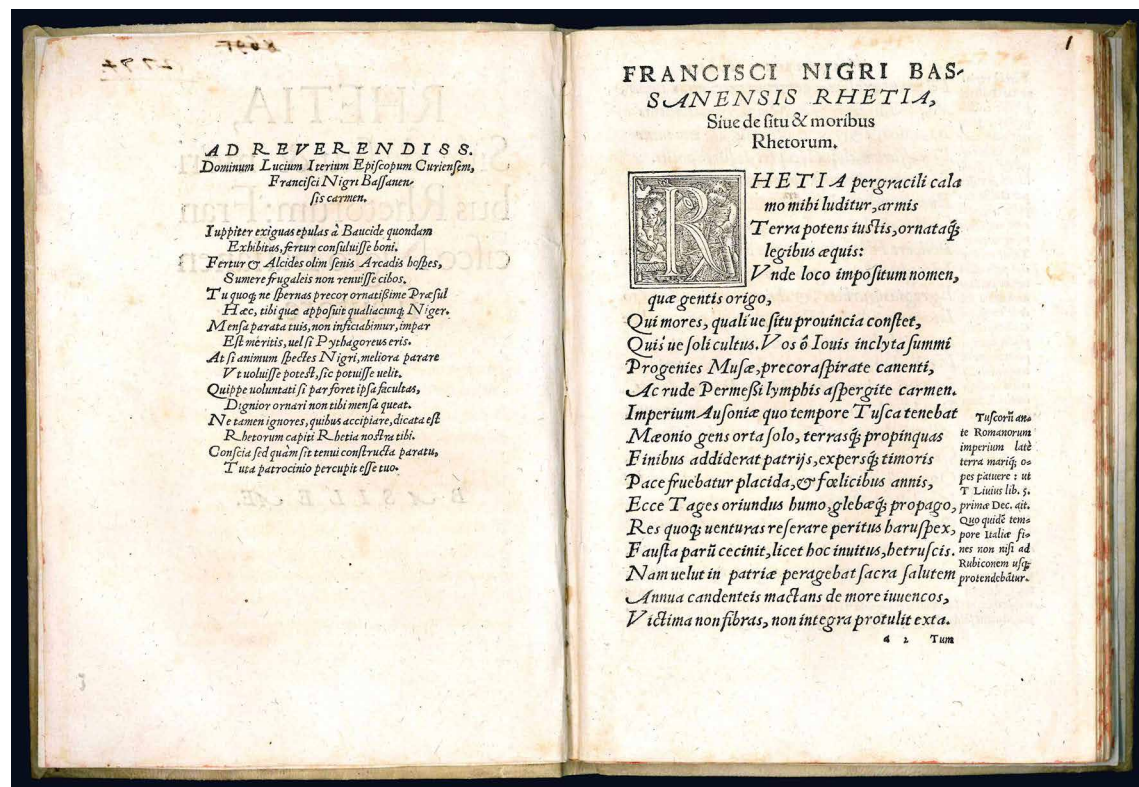 AD REVERENDISS.
Dominum Lucium Iterium Episcopum Curiensem,
Francisci Nigri Bassanen-
sis carmen.
Iuppiter exiguas epulas à Baucide quondam
Exhibitas, fertur consuluisse boni.
Fertur & Alcides olim senis Arcadis hospes,
Sumere frugaleis non renuisse cibos.
Tu quoq; ne spernas precor ornatißime Præsul
Hæc, tibi quæ apposuit qualiacunq; Niger.
Mensa parata tuis, non inficiabimur, impar
Est meritis, uel si Pythagoreus eris.
At si animum spectes Nigri, meliora parare
Vt uoluisse potest, sic potuisse uelit.
Quippe uoluntati si par foret ipsa facultas,
Dignior ornari non tibi mensa queat.
Ne tamen ignores, quibus accipiare, dicata est
Rhetorum capiti Rhetia nostra tibi.
Conscia sed quàm sit tenui constructa paratu,
Tuta patrocinio percupit esse tuo.
1
FRANCISCI NIGRI BAS-
SANENSIS RHETIA,
Siue de situ & moribus
Rhetorum.
RHETIA pergracili cala
mo mihi luditur, armis
Terra potens iustis, ornataq́;
legibus æquis:
Vnde loco impositum nomen,
quæ gentis origo,
Qui mores, quali´ue situ prouincia constet,
Quis´ue soli cultus. Vos ô Iouis inclyta summi
Progenies Musæ, precor aspirate canenti,
Ac rude Permeßi lymphis aspergite carmen.
Imperium Ausoniæ quo tempore Tusca tenebat
Mæonio gens orta solo, terrasq́; propinquas
Finibus addiderat patrijs, expersq́; timoris
Pace fruebatur placida, & fœlicibus annis,
Ecce Tages oriundus humo, glebæq́; propago,
Res quoq; uenturas reserare peritus haruspex,
Fausta parũ cecinit, licet hoc inuitus, hetruscis.
Nam uelut in patriæ peragebat sacra salutem
Annua candenteis mactans de more iuuencos,
Victima non fibras, non integra protulit exta.
a 2 Tum
Tuscorũ an-
te Romanorum
imperium latè
terra mariq; o-
pes patuere : ut
T Liuius lib. 5.
primæ Dec. ait.
Quo quidẽ tem-
pore Italiæ fi-
nes non nisi ad
Rubiconem usq;
protendebãtur.